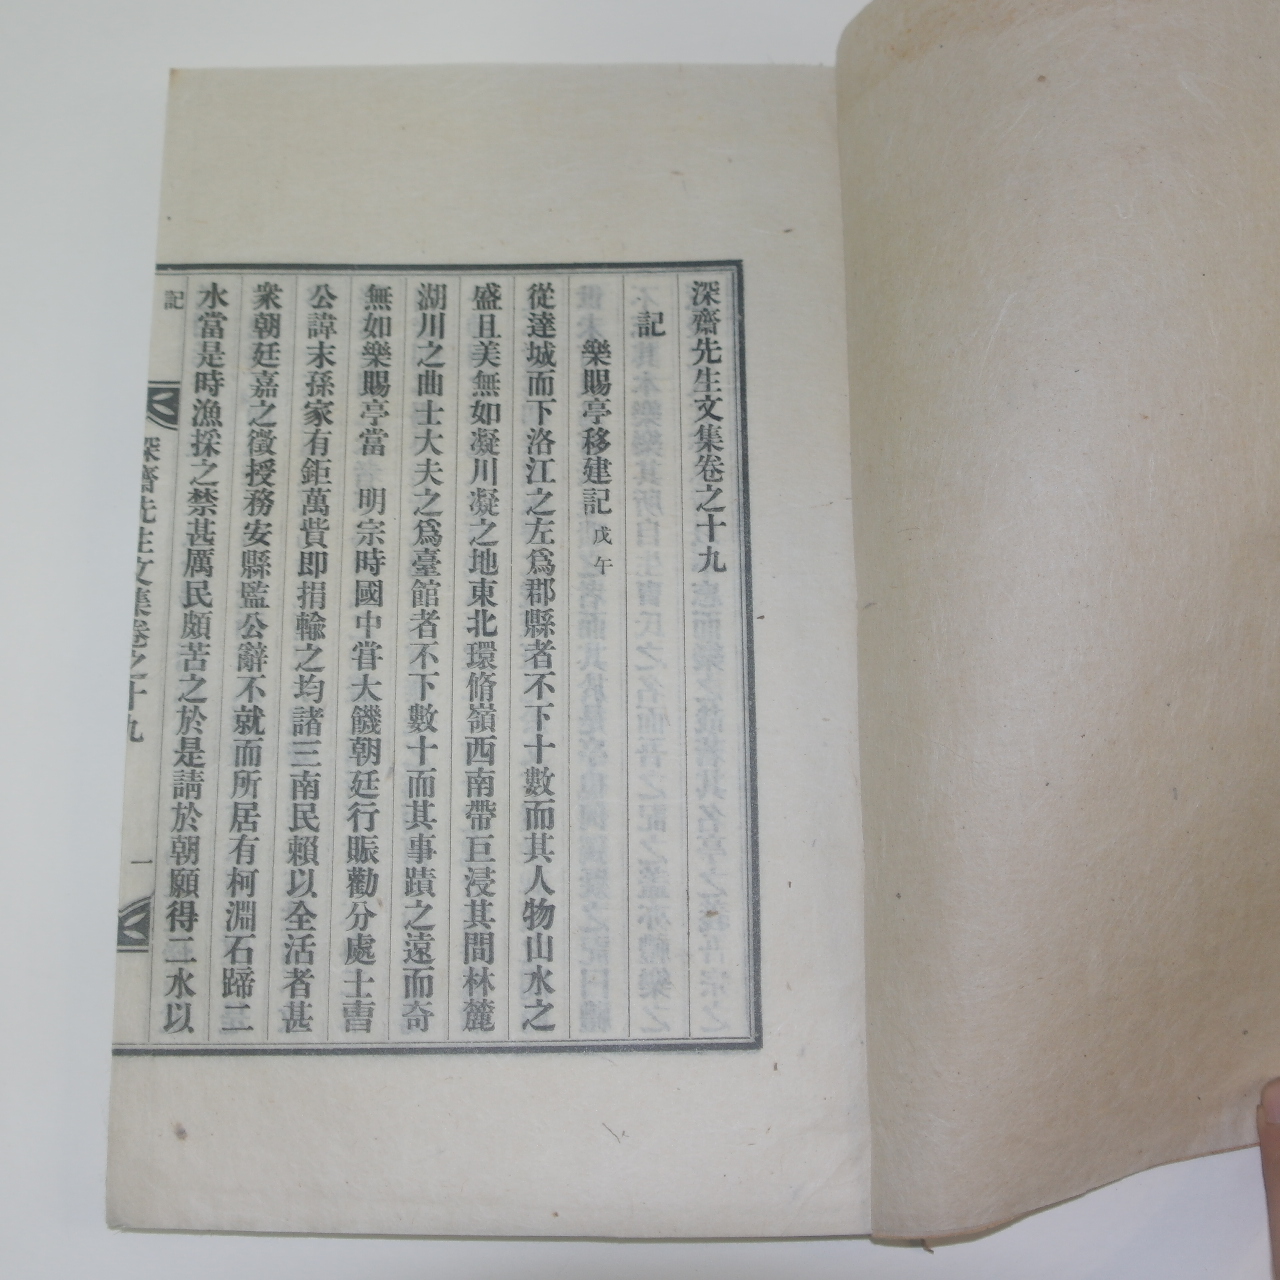 深齋先生文集卷之十九
記
樂賜亭移建記 戊午
從達城而下洛江之左爲郡縣者不下十數而其人物山水之
盛且美無如凝川凝之地東北環脩嶺西南帶巨浸其間林麓
湖川之曲士大夫之爲臺館者不下數十而其事蹟之遠而奇
無如樂賜亭當 明宗時國中甞大饑朝廷行賑勸分處士曺
公諱末孫家有鉅萬貲即捐輸之均諸三南民賴以全活者甚
衆朝廷嘉之徵授務安縣監公辭不就而所居有柯淵石蹄二
水當是時漁採之禁甚厲民頗苦之於是請於朝願得二水以
記 深齋先生文集卷之十九 一